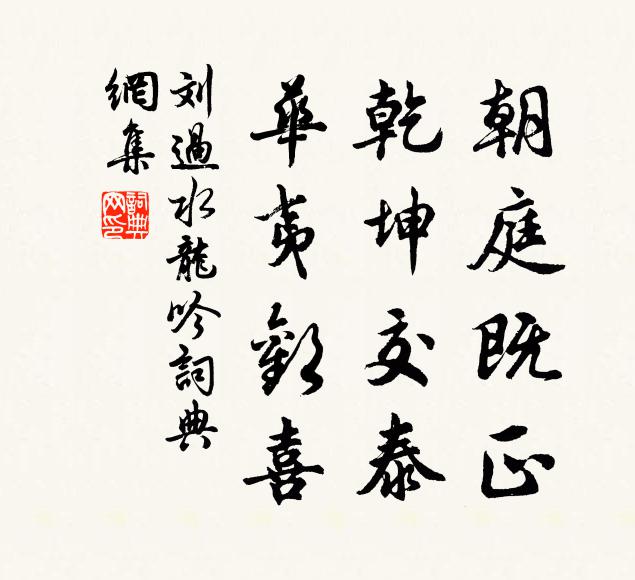 朝庭既正
乾坤交泰
華夷歡喜
刘過水龍吟詞典
網集
詞典网印